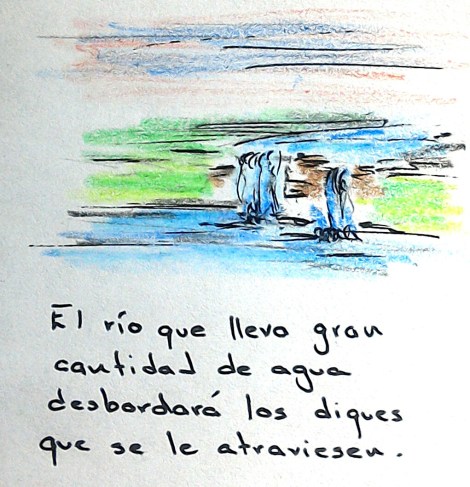 El río que lleva gran
cantidad de agua
desbordará los diques
que se le atraviesen.